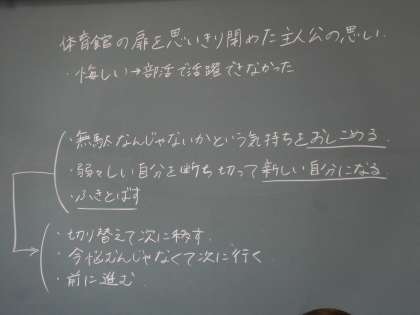 体育館の扉を思いきり閉めた主人公の思い.
・悔しい→部活で活躍できなかった
・無駄なんじゃないかという気持ちをおしこめる.
・弱々しい自分を断ち切って新しい自分になる.
・ふきとばす
・切り替えて次に移す.
・今悩むんじゃなくて次に行く
・前に進む.